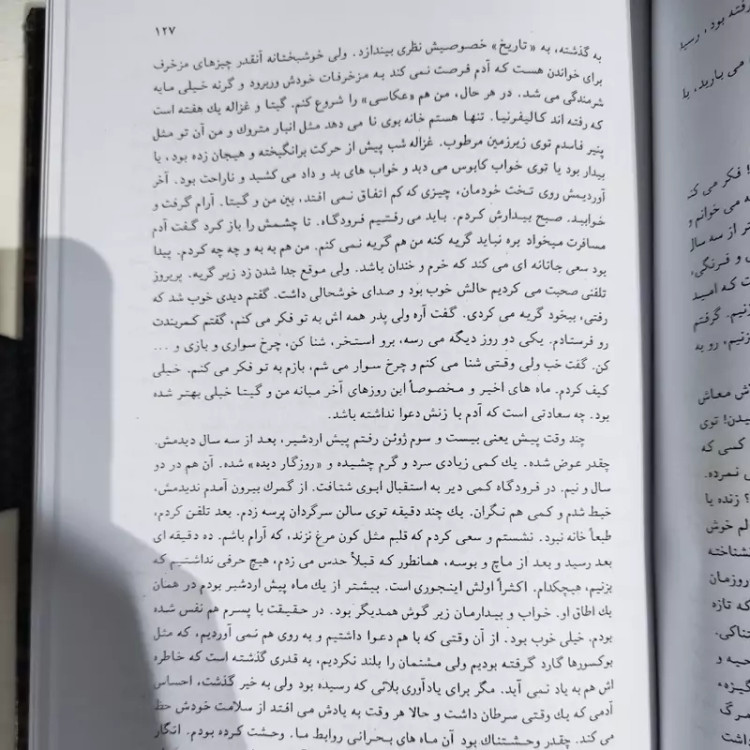 ۱۲۷
به گذشته، به «تاریخ» خصوصیش نظری بیندازد. ولی خوشبختانه آنقدر چیزهای مزخرف
برای خواندن هست که آدم فرصت نمی کند به مزخرفات خودش وربرود و گرنه خیلی مایه
شرمندگی می شد. در هر حال، من هم «عکاسی» را شروع کنم. گیتا و غزاله یك هفته است
که رفته اند کالیفرنیا. تنها هستم خانه بوی نا می دهد مثل انبار متروك و من آن تو مثل
پنیر فاسدم توی زیرزمین مرطوب. غزاله شب پیش از حرکت برانگیخته و هیجان زده بود، یا
بیدار بود یا توی خواب کابوس می دید و خواب های بد و داد می کشید و ناراحت بود. آخر
آوردیمش روی تخت خودمان، چیزی که کم اتفاق نمی افتد، بین من و گیتا. آرام گرفت و
خوابید. صبح بیدارش کردم. باید می رفتیم فرودگاه. تا چشمش را باز کرد گفت آدم
مسافرت میخواد بره نباید گریه کنه من هم گریه نمی کنم. من هم به به و چه چه کردم. پیدا
بود سعی جانانه ای می کند که خرم و خندان باشد. ولی موقع جدا شدن زد زیر گریه. پریروز
تلفنی صحبت می کردیم حالش خوب بود و صدای خوشحالی داشت. گفتم دیدی خوب شد که
رفتی، بیخود گریه می کردی. گفت آره ولی پدر همه اش به تو فکر می کنم، گفتم کمربندت
رو فرستادم. یکی دو روز دیگه می رسه، برو استخر، شنا کن، چرخ سواری و بازی و ...
کن. گفت خب ولی وقتی شنا می کنم و چرخ سوار می شم، بازم به تو فکر می کنم. خیلی
کیف کردم. ماه های اخیر و مخصوصاً این روزهای آخر میانه من و گیتا خیلی بهتر شده
بود. چه سعادتی است که آدم با زنش دعوا نداشته باشد.
چند وقت پیش یعنی بیست و سوم ژوئن رفتم پیش اردشیر، بعد از سه سال دیدمش.
چقدر عوض شده. یك کمی زیادی سرد و گرم چشیده و «روزگار دیده» شده. آن هم در دو
سال و نیم. در فرودگاه کمی دیر به استقبال ابوی شتافت. از گمرك بیرون آمدم ندیدمش.
خیط شدم و کمی هم نگران. یك چند دقیقه توی سالن سرگردان پرسه زدم. بعد تلفن کردم،
طبعاً خانه نبود. نشستم و سعی کردم که قلبم مثل کون مرغ نزند، که آرام باشم. ده دقیقه ای
بعد رسید و بعد از ماچ و بوسه، همانطور که قبلاً حدس می زدم، هیچ حرفی نداشتیم که
بزنیم، هیچکدام. اکثراً اولش اینجوری است. بیشتر از یك ماه پیش اردشیر بودم در همان
یك اطاق او. خواب و بیدارمان زیر گوش همدیگر بود. در حقیقت با پسرم هم نفس شده
بودم. خیلی خوب بود. از آن وقتی که با هم دعوا داشتیم و به روی هم نمی آوردیم، که مثل
بوکسورها گارد گرفته بودیم ولی مشتمان را بلند نکردیم، به قدری گذشته است که خاطره
اش هم به یاد نمی آید. مگر برای یادآوری بلائی که رسیده بود ولی به خیر گذشت، احساس
آدمی که یك وقتی سرطان داشت و حالا هر وقت به یادش می افتد از سلامت خودش حظ
می کند. چقدر وحشتناك بود آن ماه های بحرانی روابط ما. وحشت کرده بودم. انگار